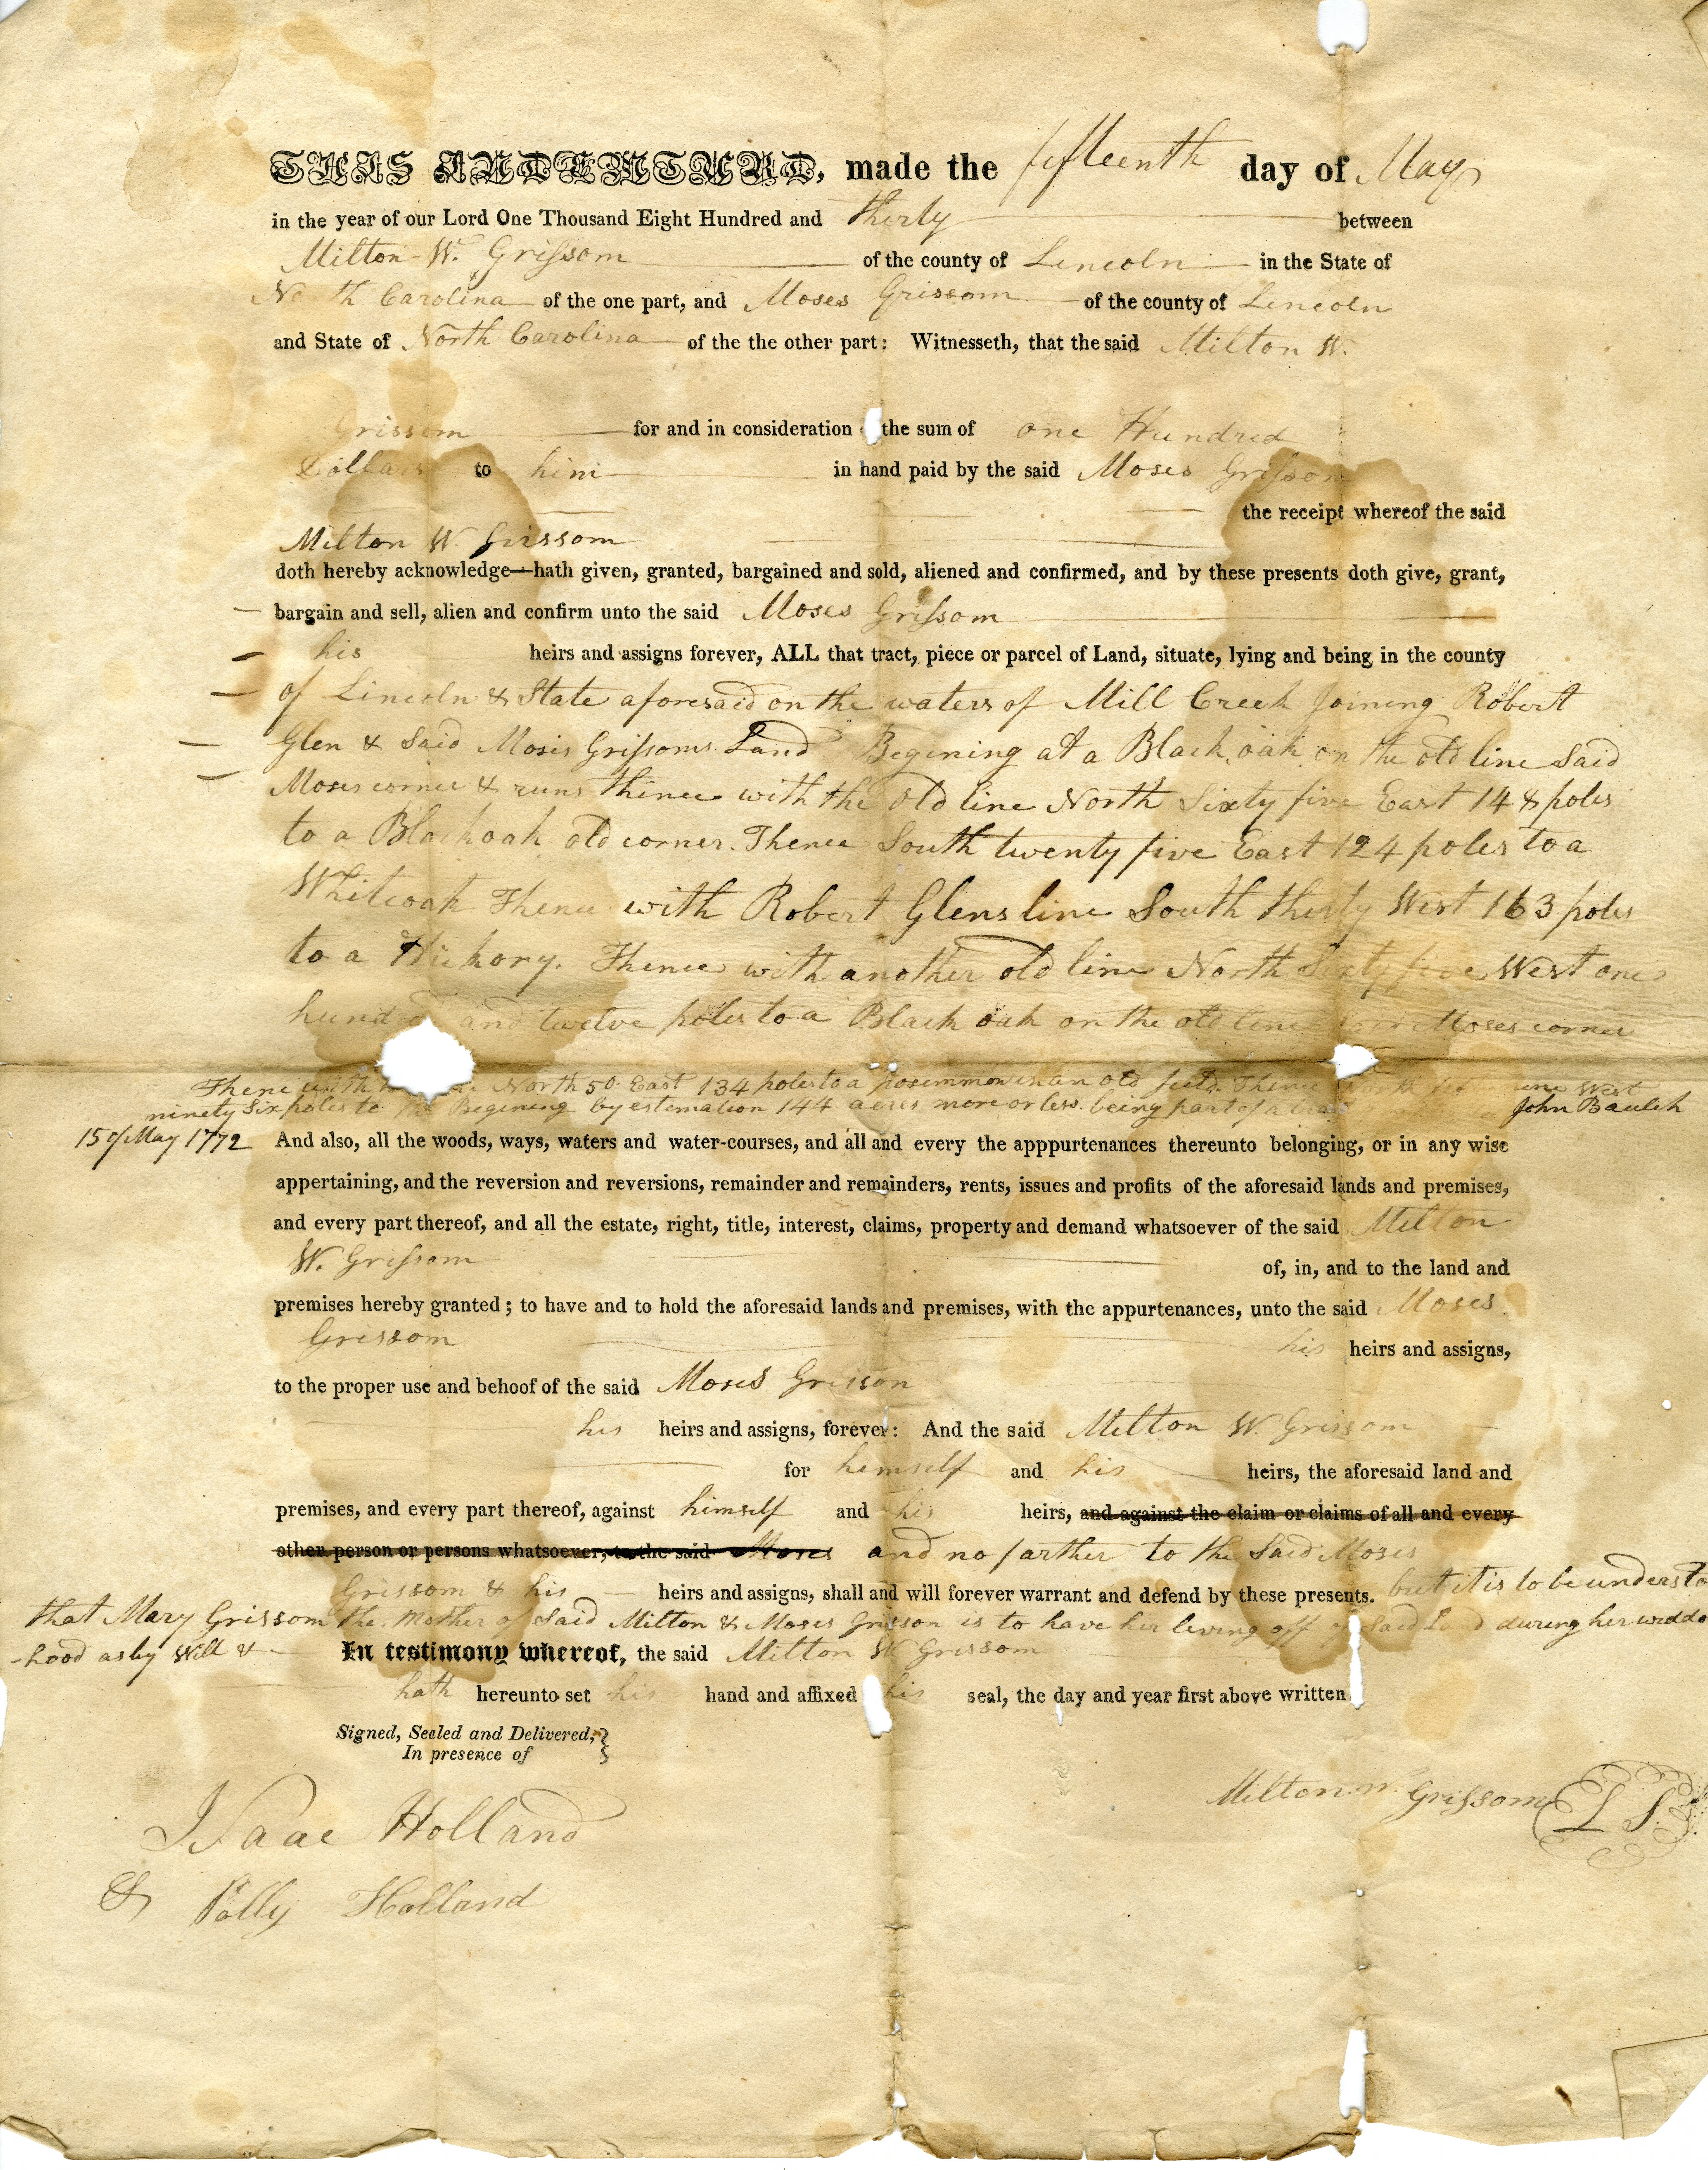 THIS INDENTURE, made the fifteenth day of May
in the year of our Lord One Thousand Eight Hundred and thirty between
Milton W. Grissom of the county of Lincoln in the State of
North Carolina of the one part, and Moses Grissom of the county of Lincoln
and State of North Carolina of the the other part: Witnesseth, that the said Milton W.
Grissom for and in consideration the sum of one Hundred
Dollars to him in hand paid by the said Moses Grissom
the receipt whereof the said
Milton W Grissom
doth hereby acknowledge—hath given, granted, bargained and sold, aliened and confirmed, and by these presents doth give, grant,
bargain and sell, alien and confirm unto the said Moses Grissom
his heirs and assigns forever, ALL that tract, piece or parcel of Land, situate, lying and being in the county
of Lincoln & State aforesaid on the waters of Mill Creek Joining Robert
Glen & Said Moses Grissoms Land Begining at a Black oak on the old line Said
Moses corner & runs thence with the old line North Sixty five East 148 poles
to a Blackoak old corner. Thence South twenty five East 124 poles to a
Whiteoak Thence with Robert Glens line South thirty West 163 poles
to a Hickory. Thence with another old line North Sixty five West one
hund and twelve poles to a Black oak on the old line Moses corner
Thence with North 50 East 134 poles to a posimmon in an old field. Thence West
ninety Six poles to the Begining by estemation 144 acres more or less. being part of a John Baulch
15 of May 1772 And also, all the woods, ways, waters and water-courses, and all and every the apppurtenances thereunto belonging, or in any wise
appertaining, and the reversion and reversions, remainder and remainders, rents, issues and profits of the aforesaid lands and premises,
and every part thereof, and all the estate, right, title, interest, claims, property and demand whatsoever of the said Milton
W. Grissom of, in, and to the land and
premises hereby granted; to have and to hold the aforesaid lands and premises, with the appurtenances, unto the said Moses
Grissom his heirs and assigns,
to the proper use and behoof of the said Moses Grisson
his heirs and assigns, forever: And the said Milton W. Grissom
for himself and his heirs, the aforesaid land and
premises, and every part thereof, against himself and his heirs, and against the claim or claims of all and every
other person or persons whatsoever, to the said Moses and no farther to the Said Moses
Grissom & his heirs and assigns, shall and will forever warrant and defend by these presents. but it is to be understo
that Mary Grissom the Mother of Said Milton & Moses Grisson is to have her living off of Said Land during her widdo
-hood as by Will & In testimony whereof, the said Milton W Grissom
hath hereunto set his hand and affixed his seal, the day and year first above written
Signed, Sealed and Delivered,
In presence of
Milton W. Grissom L S.
Isaac Holland
& Polly Holland